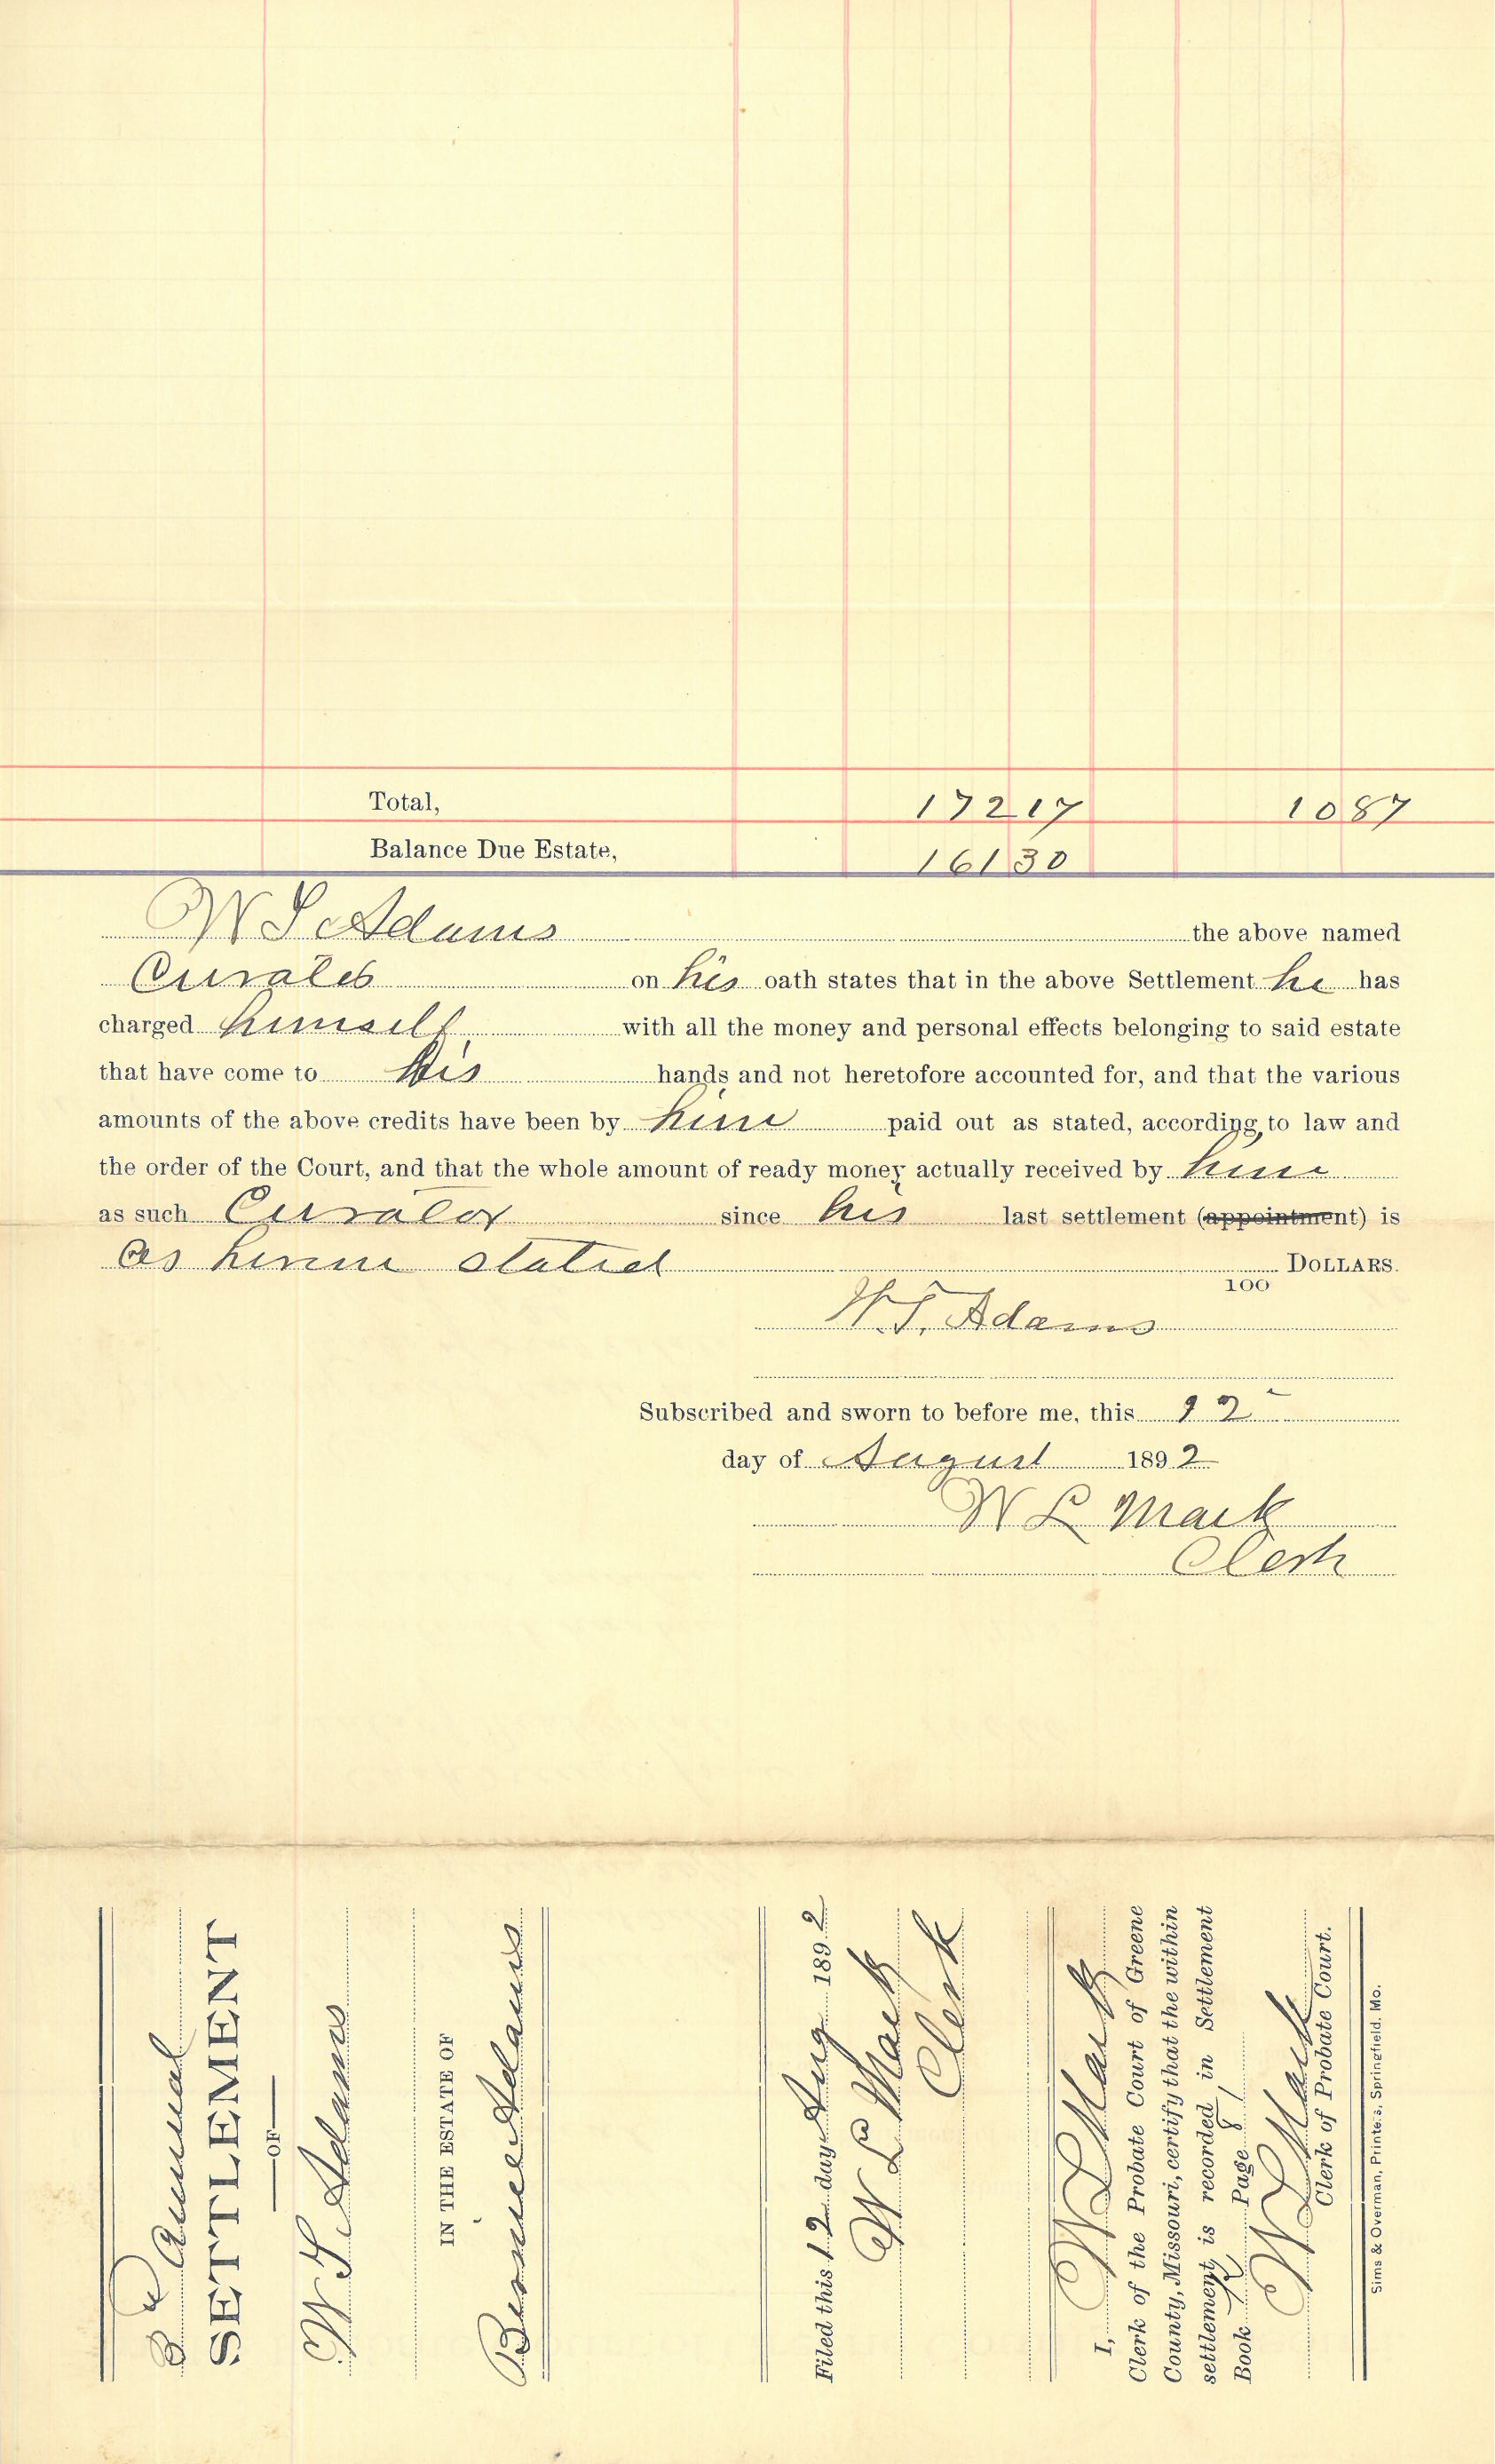 Total, 172 17 10 87
Balance Due Estate, 161 30
W S Adams the above named
Curator on his oath states that in the above Settlement he has
charged himself with all the money and personal effects belonging to said estate
that have come to his hands and not heretofore accounted for, and that the various
amounts of the above credits have been by him paid out as stated, according to law and
the order of the Court, and that the whole amount of ready money actually received by him
as such Curator since his last settlement (appointment) is
as herein stated DOLLARS.
100
W.S. Adams
Subscribed and sworn to before me, this 12
day of August 1892
W L Mack
Clerk
Annual
SETTLEMENT
OF
W S Adams
IN THE ESTATE OF
Bennie Adams
Filed this 12 day Aug 1892
W L Mack
Clerk
I, W L Mack
Clerk of the Probate Court of Greene
County, Missouri, certify that the within
settlement is recorded in Settlement
Book K Page 81
W L Mack
Clerk of Probate Court.
Sims & Overman, Printers, Springfield, Mo.